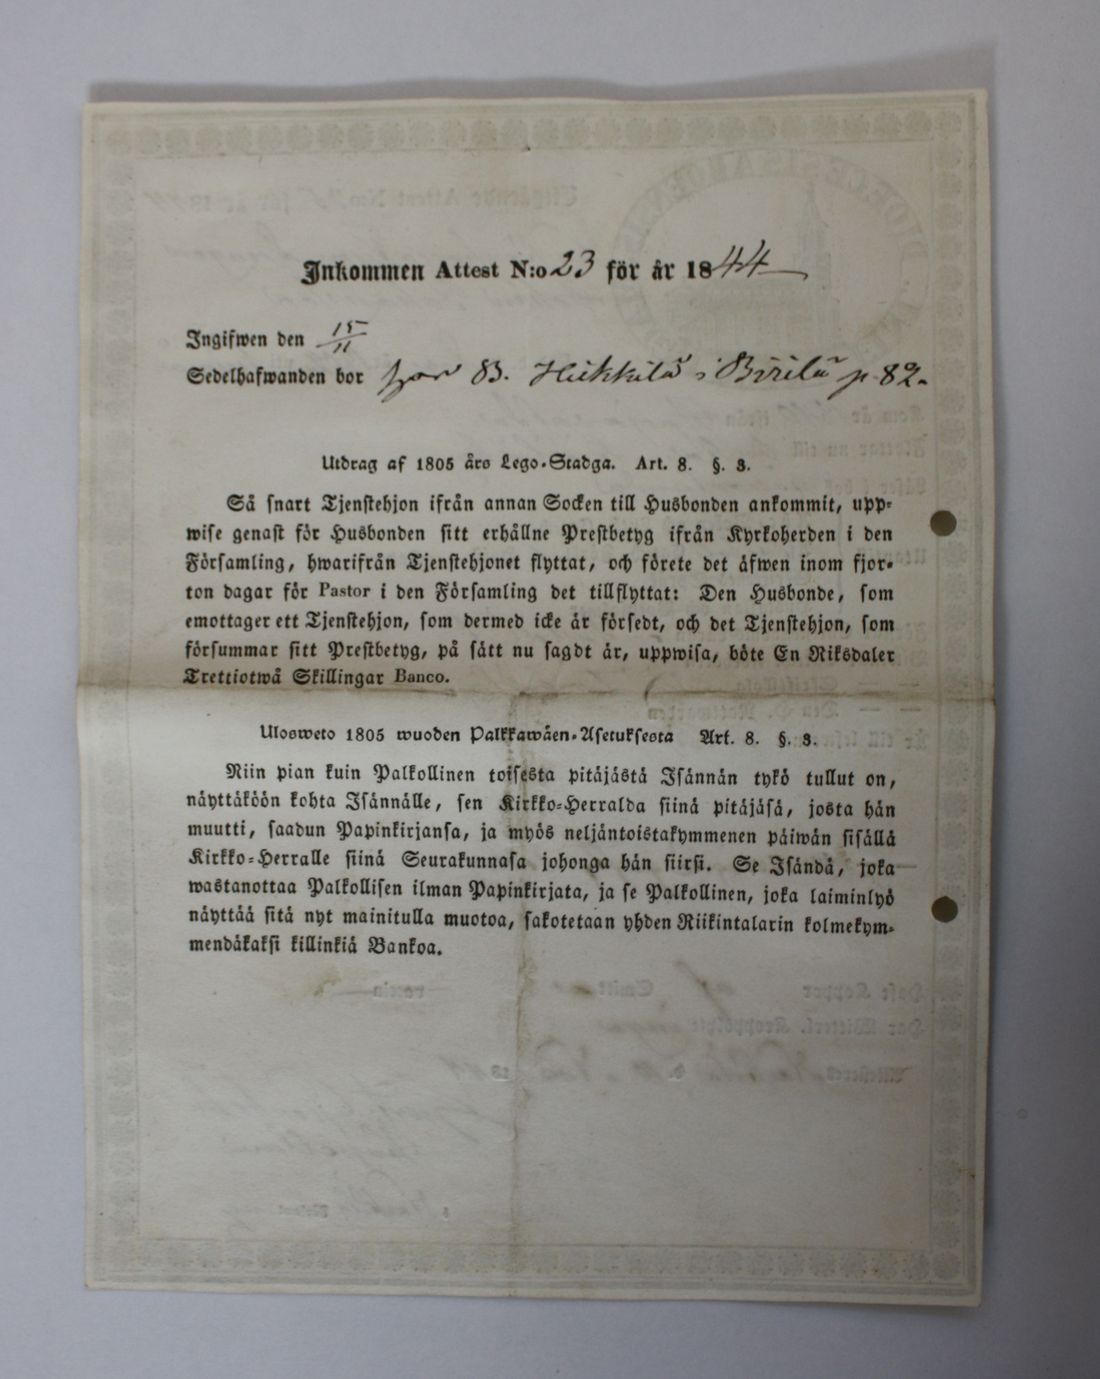 Inkommen Attest N:o 23 för år 1844
Ingifwen den 15/11
Sedelhafwanden bor hos B. Heikkilä i Birilä p. 82.
Utdrag af 1805 års Lego-Stadga. Art. 8. §. 3.
Så snart Tjenstehjon ifrån annan Socken till Husbonden ankommit, upp-
wise genast för Husbonden sitt erhållne Prestbetyg ifrån Kyrkoherden i den
Församling, hwarifrån Tjenstehjonet flyttat, och förete det äfwen inom fjor-
ton dagar för Pastor i den Församling det tillflyttat: Den Husbonde, som
emottager ett Tjenstehjon, som dermed icke är försedt, och det Tjenstehjon, som
försummar sitt Prestbetyg, på sätt nu sagdt är, uppwisa, böte En Riksdaler
Trettiotwå Skillingar Banco.
Ulosweto 1805 wuoden Palkkawäen-Asetuksesta Art. 8. §. 3.
Niin pian kuin Palkollinen toisesta pitäjästä Isännän tykö tullut on,
näyttäköön kohta Isännälle, sen Kirkko-Herralda siinä pitäjäsä, josta hän
muutti, saadun Papinkirjansa, ja myös neljäntoistakymmenen päiwän sisällä
Kirkko-Herralle siinä Seurakunnasa johonga hän siirsi. Se Isändä, joka
wastanottaa Palkollisen ilman Papinkirjata, ja se Palkollinen, joka laiminlyö
näyttää sitä nyt mainitulla muotoa, sakotetaan yhden Riikintalarin kolmekym-
mendäkaksi killinkiä Bankoa.